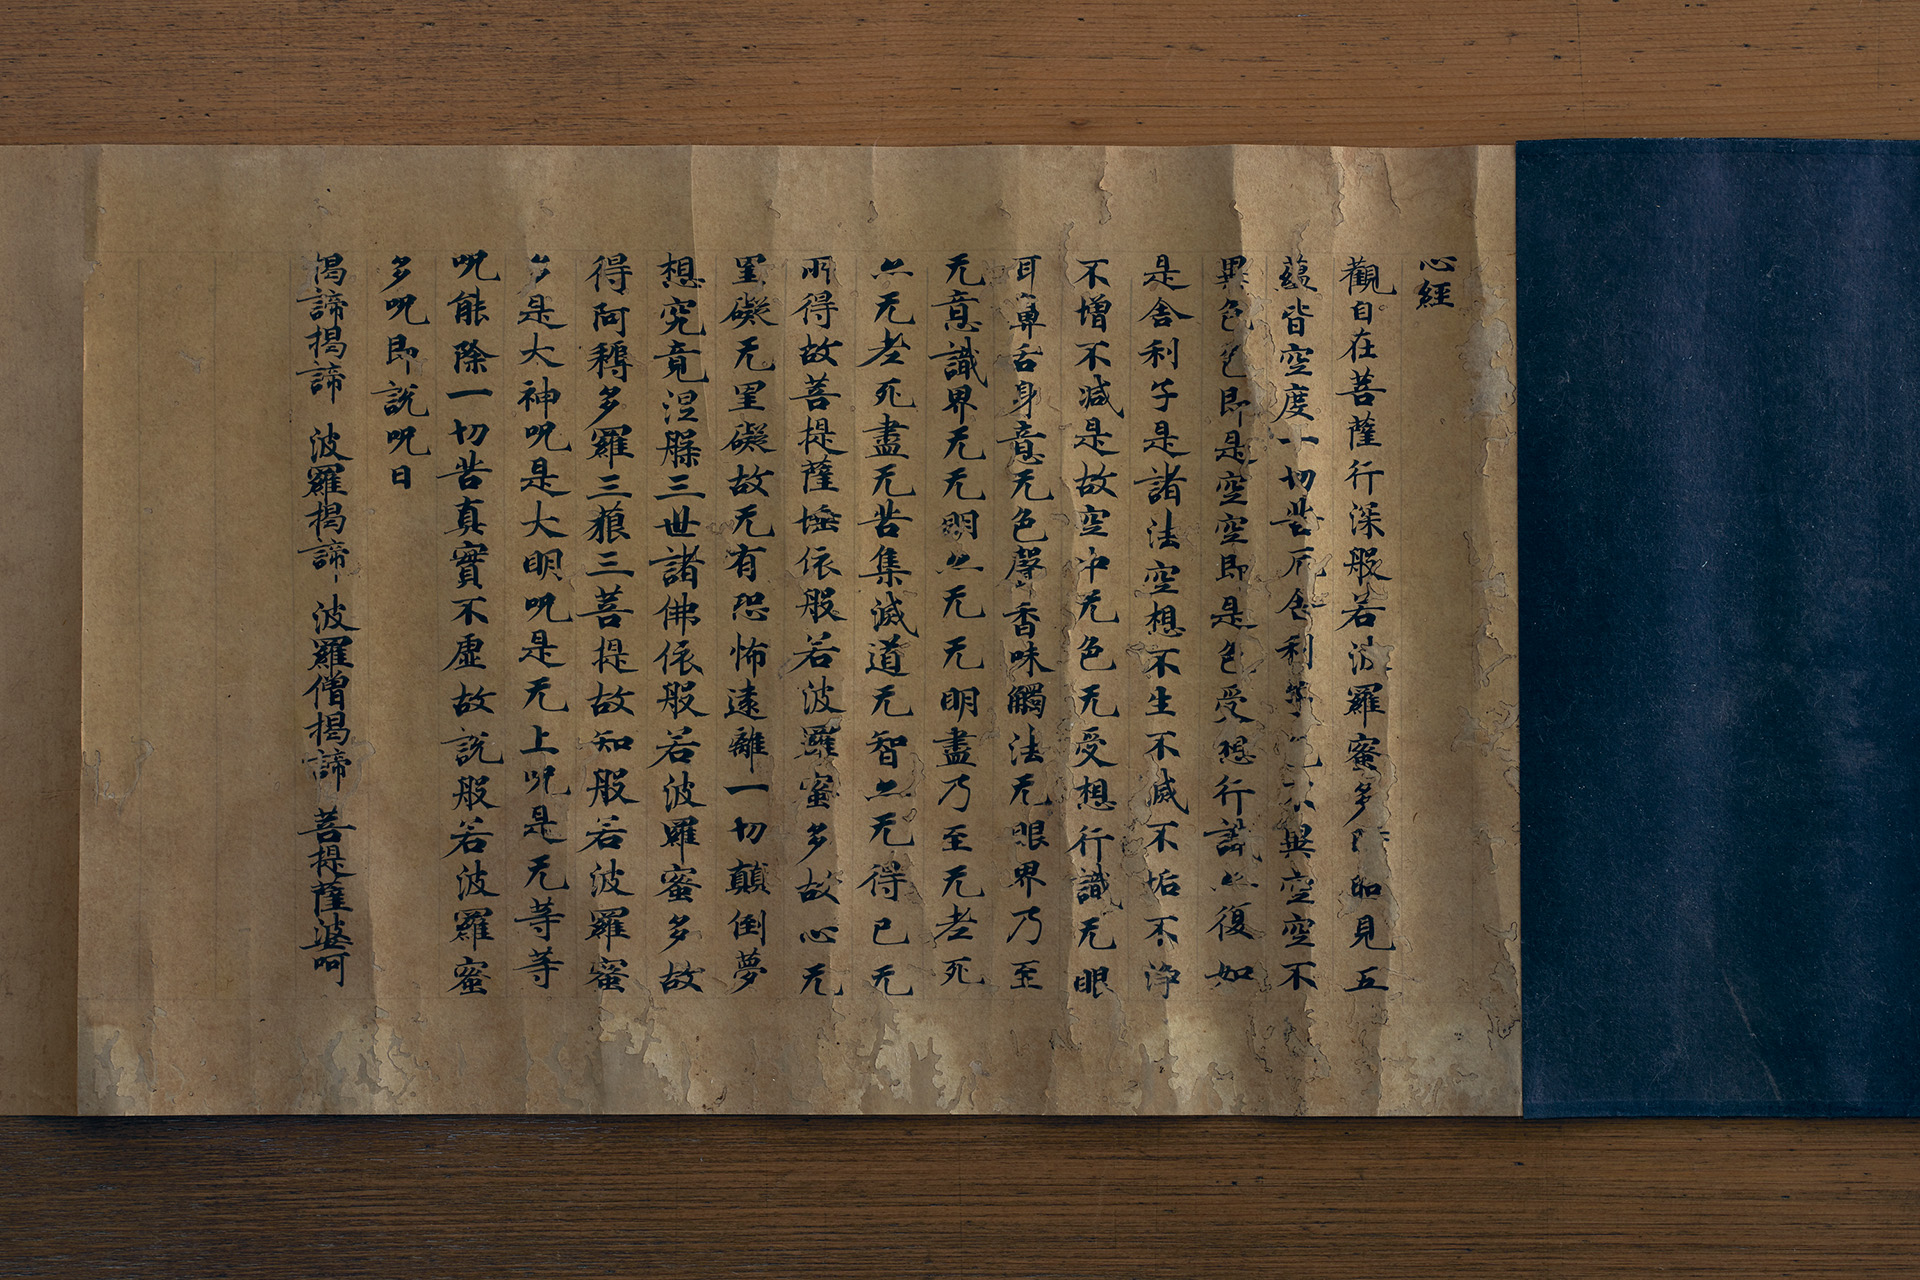 心經
觀自在菩薩行深般若波羅蜜多時照見五
蘊皆空度一切苦厄舍利色不異空空不
異色色即是空空即是色受想行識亦復如
是舍利子是諸法空想不生不滅不垢不淨
不增不減是故空中无色无受想行識无眼
耳鼻舌身意无色聲香味觸法无眼界乃至
无意識界无无明亦无无明盡乃至无老死
亦无老死盡无苦集滅道无智亦无得已无
所得故菩提薩埵依般若波羅蜜多故心无
罣礙无罣礙故无有恐怖遠離一切顛倒夢
想究竟涅槃三世諸佛依般若波羅蜜多故
得阿耨多羅三藐三菩提故知般若波羅蜜
多是大神呪是大明呪是无上呪是无等等
呪能除一切苦真實不虛故說般若波羅蜜
多呪即說呪曰
揭諦揭諦 波羅揭諦 波羅僧揭諦 菩提薩婆呵